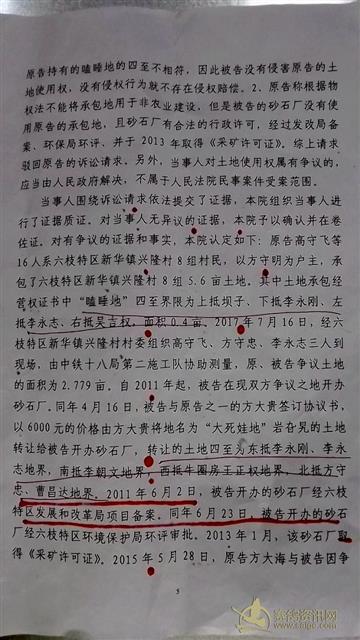 原告持有的瞌睡地的四至不相符，因此被告没有侵害原告的土
地使用权，没有侵权行为就不存在侵权赔偿。2、原告称根据物
权法不能将承包地用于非农业建设，但是被告的砂石厂没有使
用原告的承包地，且砂石厂有合法的行政许可，经过发改局备
案、环保局环评、并于 2013 年取得《采矿许可证》。综上请求
驳回原告的诉讼请求。另外，当事人对土地使用权属有争议的，
应当由人民政府解决，不属于人民法院民事案件受案范围。
当事人围绕诉讼请求依法提交了证据，本院组织当事人进
行了证据质证。对当事人无异议的证据，本院予以确认并在卷
佐证。对有争议的证据和事实，本院认定如下：原告高守飞等
16 人系六枝特区新华镇兴隆村 8 组村民，以方守明为户主，承
包了六枝特区新华镇兴隆村 8 组 5.6 亩土地。其中土地承包经
营权证书中“瞌睡地”四至界限为上抵坝子、下抵李永刚、左
抵李永志、右抵吴吉权，面积 0.4 亩。2017 年 7 月 16 日，经六
枝特区新华镇兴隆村村委组织高守飞、方守忠、李永志三人到
现场，由中铁十八局第二施工队协助测量，原、被告争议土地
的面积为 2.779 亩。自 2011 年起，被告在现双方争议之地开办
砂石厂。同年 4 月 16 日，被告与原告之一的方大贵签订协议书，
以 6000 元的价格由方大贵将地名为“大死娃地”岩旮旯的土地
转让给被告开办砂石厂，转让的土地四至为东抵李永刚、李永
志地界，南抵李朝文地界，西抵牛圈房王正权地界，北抵方守
忠、曹昌达地界。2011 年 6 月 2 日，被告开办的砂石厂经六枝
特区发展和改革局项目备案。同年 6 月 23 日，被告开办的砂石
厂经六枝特区环境保护局环评审批。2013 年 1 月，该砂石厂取
得《采矿许可证》。2015 年 5 月 28 日，原告方大海与被告因争
5